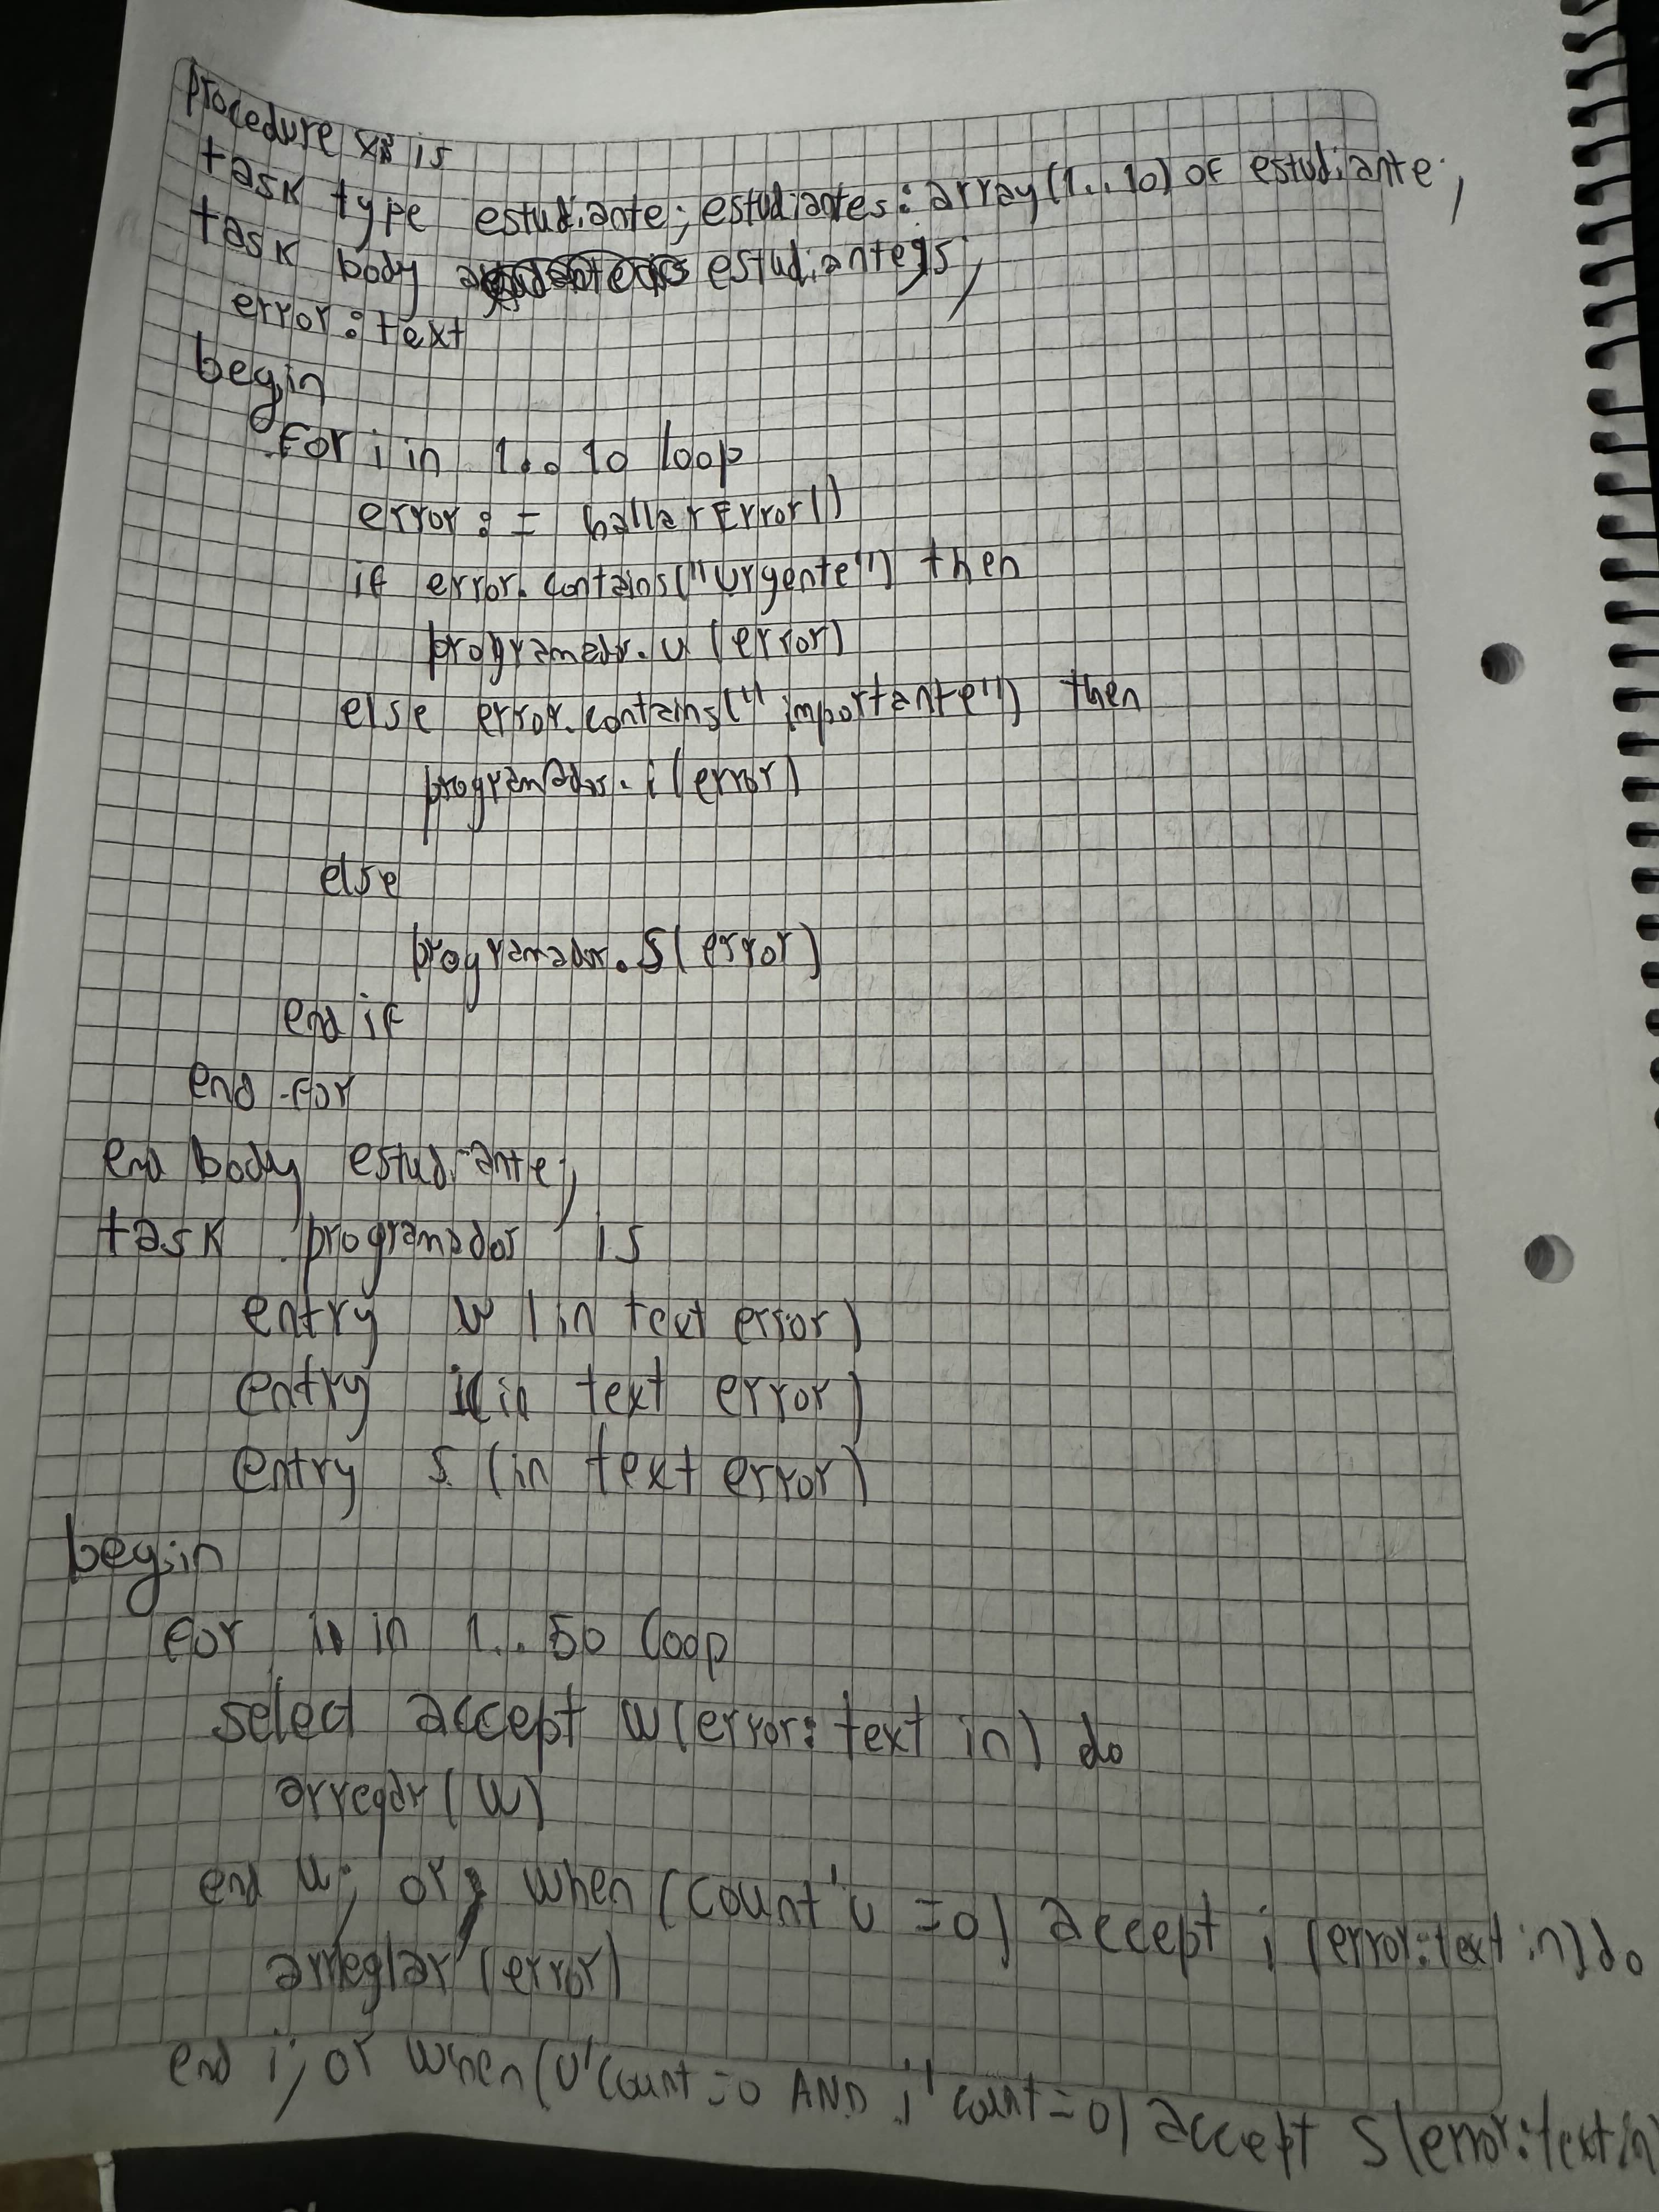 procedure is
task type estudiante; estudiantes: array(1..10) of estudiante;
task body estudiante is;
error: text
begin
for i in 1..10 loop
error := hallarError()
if error.contains("Urgente") then
programador.u (error)
else error.contains("importante") then
programador.i (error)
else
programador.s (error)
end if
end for
end body estudiante;
task programador is
entry u (in text error)
entry i (in text error)
entry s (in text error)
begin
for i in 1..50 loop
select accept u (error: text in) do
arreglar (u)
end u; or when (count'u =0) accept i (error: text in) do
arreglar (error)
end i; or when (u'count=0 AND i'count=0) accept s (error: text in